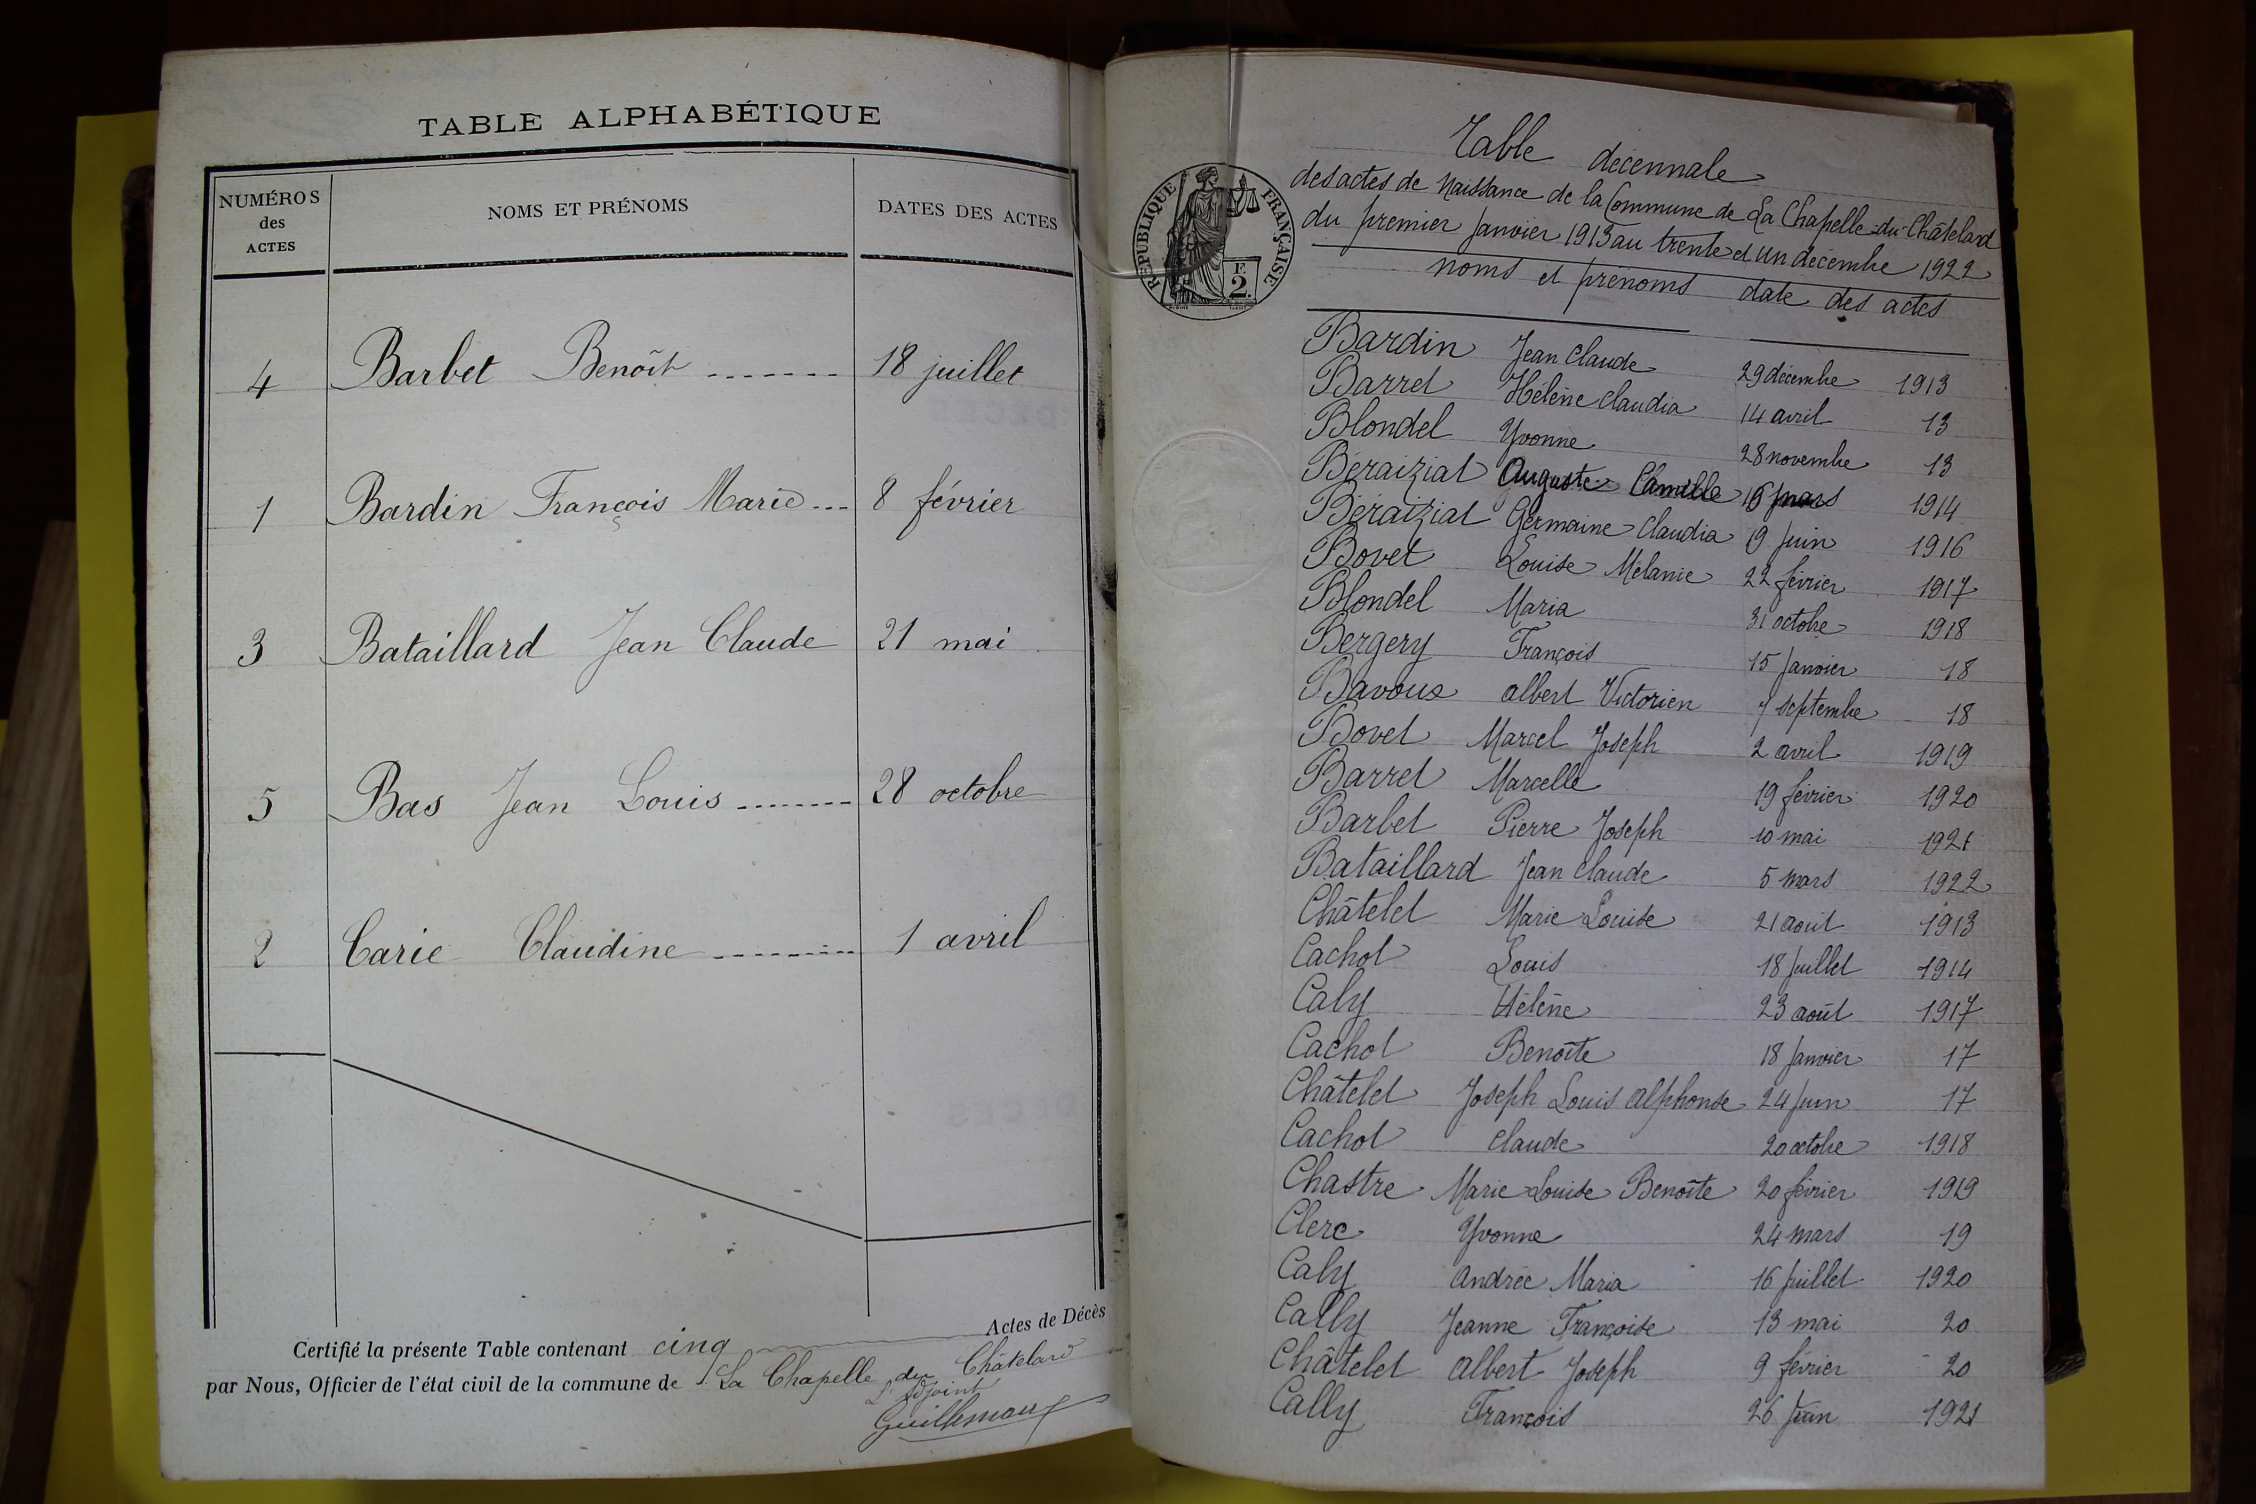 TABLE ALPHABÉTIQUE
NUMÉROS des ACTES NOMS ET PRÉNOMS DATES DES ACTES
4 Barbet Benoît 18 juillet
1 Bardin François Marie 8 février
3 Bataillard Jean Claude 21 mai
5 Bas Jean Louis 28 octobre
2 Carie Claudine 1 avril
Certifié la présente Table contenant cinq Actes de Décès
par Nous, Officier de l'état civil de la commune de La Chapelle du Châtelard
L'adjoint
Guillemaux
REPUBLIQUE FRANÇAISE
F. 2.
Table décennale
des actes de Naissance de la Commune de La Chapelle-du-Châtelard
du premier Janvier 1913 au trente et un décembre 1922
noms et prénoms date des actes
Bardin Jean Claude 29 décembre 1913
Barret Hélène Claudia 14 avril 13
Blondel Yvonne 28 novembre 13
Béraiziat Auguste Camille 16 mars 1914
Béraiziat Germaine Claudia 9 Juin 1916
Bovet Louise Mélanie 22 février 1917
Blondel Maria 31 octobre 1918
Bergery François 15 Janvier 18
Bavoux albert Victorien 7 septembre 18
Bovet Marcel Joseph 2 avril 1919
Barret Marcelle 19 février 1920
Barbet Pierre Joseph 10 mai 1921
Bataillard Jean Claude 5 mars 1922
Châtelet Marie Louise 21 aout 1913
Cachot Louis 18 Juillet 1914
Caly Hélène 23 août 1917
Cachot Benoîte 18 Janvier 17
Châtelet Joseph Louis alphonse 24 Juin 17
Cachot claude 20 octobre 1918
Chastre Marie Louise Benoîte 20 février 1919
Clerc Yvonne 24 mars 19
Caly andrée Maria 16 Juillet 1920
Cally Jeanne Françoise 13 mai 20
Châtelet albert Joseph 9 février 20
Cally François 26 Juin 1921